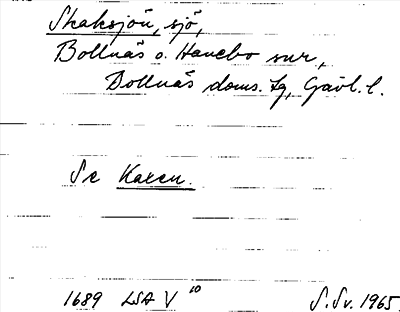 Skaksjön, sjö,
Bollnäs o. Hanebo snr,
Bollnäs doms. tg, Gävl. l.
Se Kaxen.
1689 LSA V 10
S. Sv. 1965.